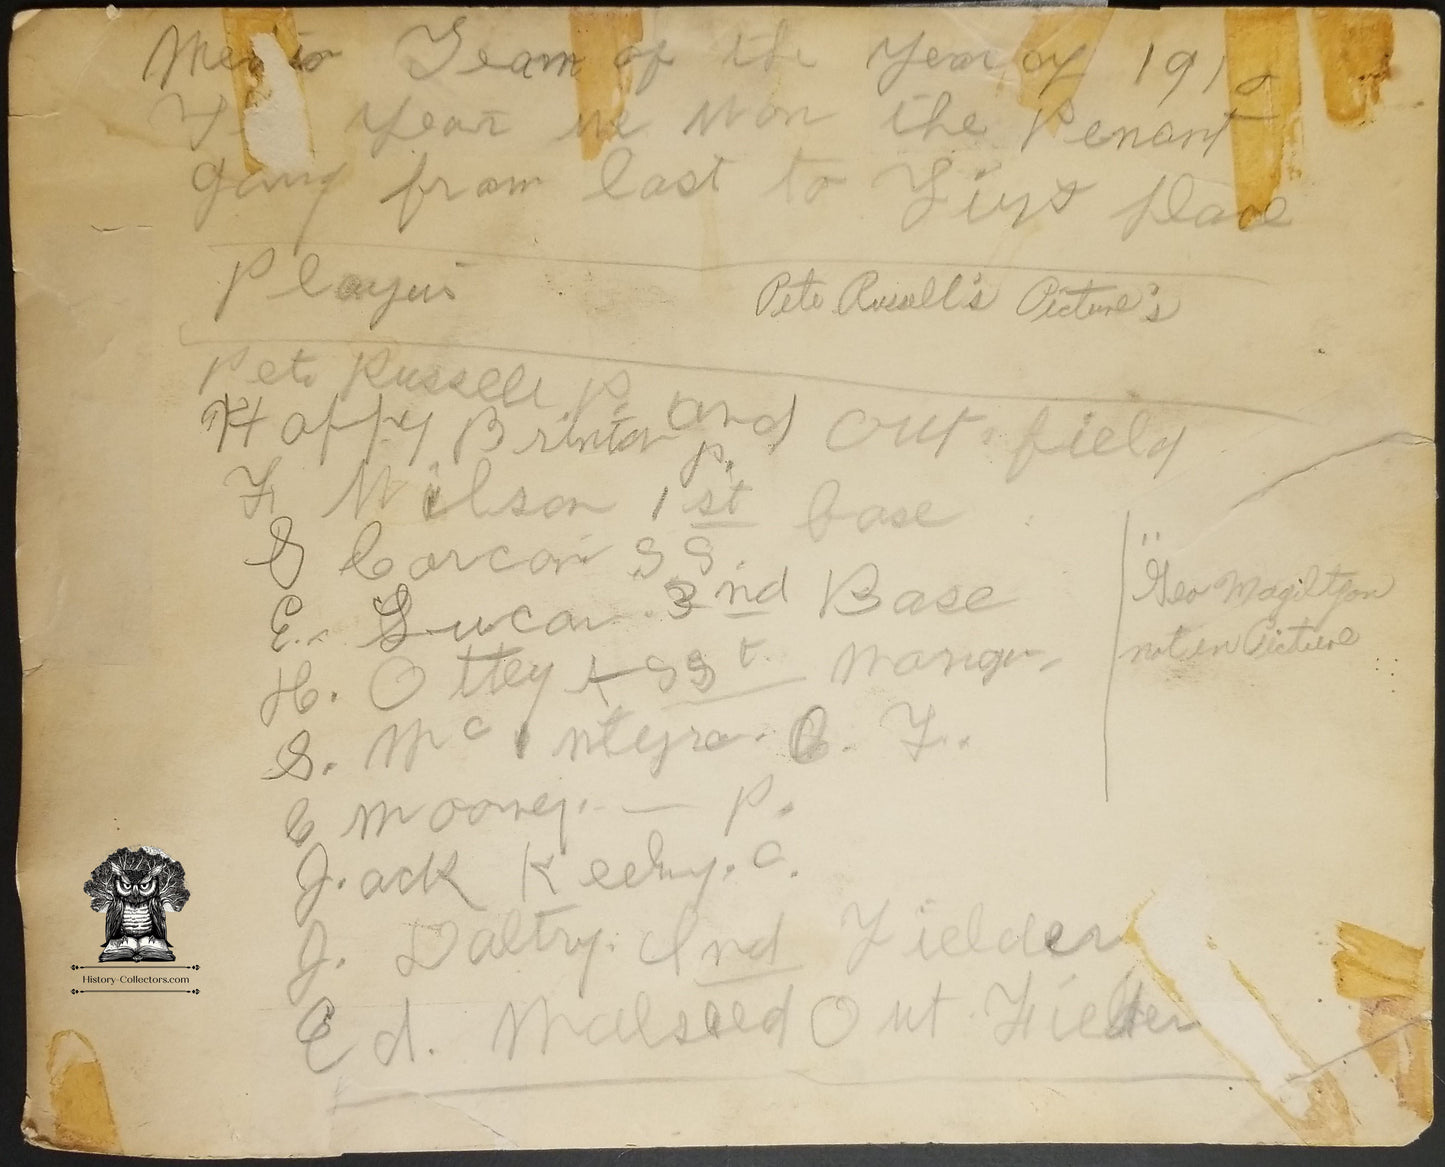 Team of the Year of 191
year we won the Penant
going from last to First place
Players
Pete Russell's Picture's
Pete Russell P. and Out. field
Happy Brinton P.
F. Wilson 1st base
S Corcoran SS
E. Lucas 2nd Base
H. Ottey Asst. Manger
S. McIntyre. C. F.
C Mooney. — P.
J.ack Keeny. C.
J. Daltry. Ind Fielder
Ed. Malseed Out Fielder
"Geo Magilton
not in Picture
History-Collectors.com